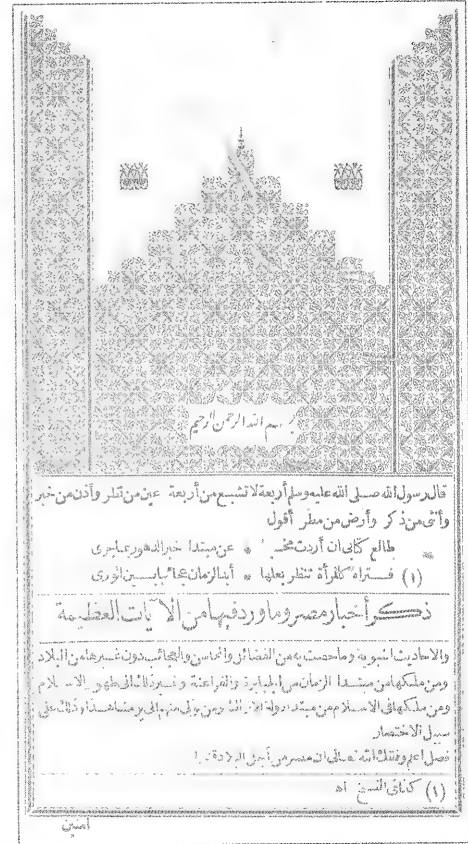 بسم الله الرحمن الرحيم
قال رسول الله صلى الله عليه وسلم أربعة لا تشبع من أربعة عين من نظر وأذن من خبر
وأنثى من ذكر وأرض من مطر أقول
طالع كتابي ان أردت * عن مبتدا خبر الدهور بما جرى
(١) فستراه كمرأة تنظر بعلها * أبدا الزمان عجائبا بين الورى
ذكر أخبار مصر وما ورد فيها من الآيات العظيمة
والاحاديث النبويه وما خصت به من الفضائل والمحاسن والعجائب دون غيرها من البلاد
ومن ملكها من مبتدا الزمان من الجبابرة والفراعنة وغير ذلك الى ظهور الاسلام
ومن ملكها فى الاسلام من مبتدا دولة ومن ولى منهم الى يومنا هذا وذلك على
سبيل الاختصار
فصل اعلم وفقك الله تعالى ان مصر من أجل البلاد
(١) كذا فى النسخ اه